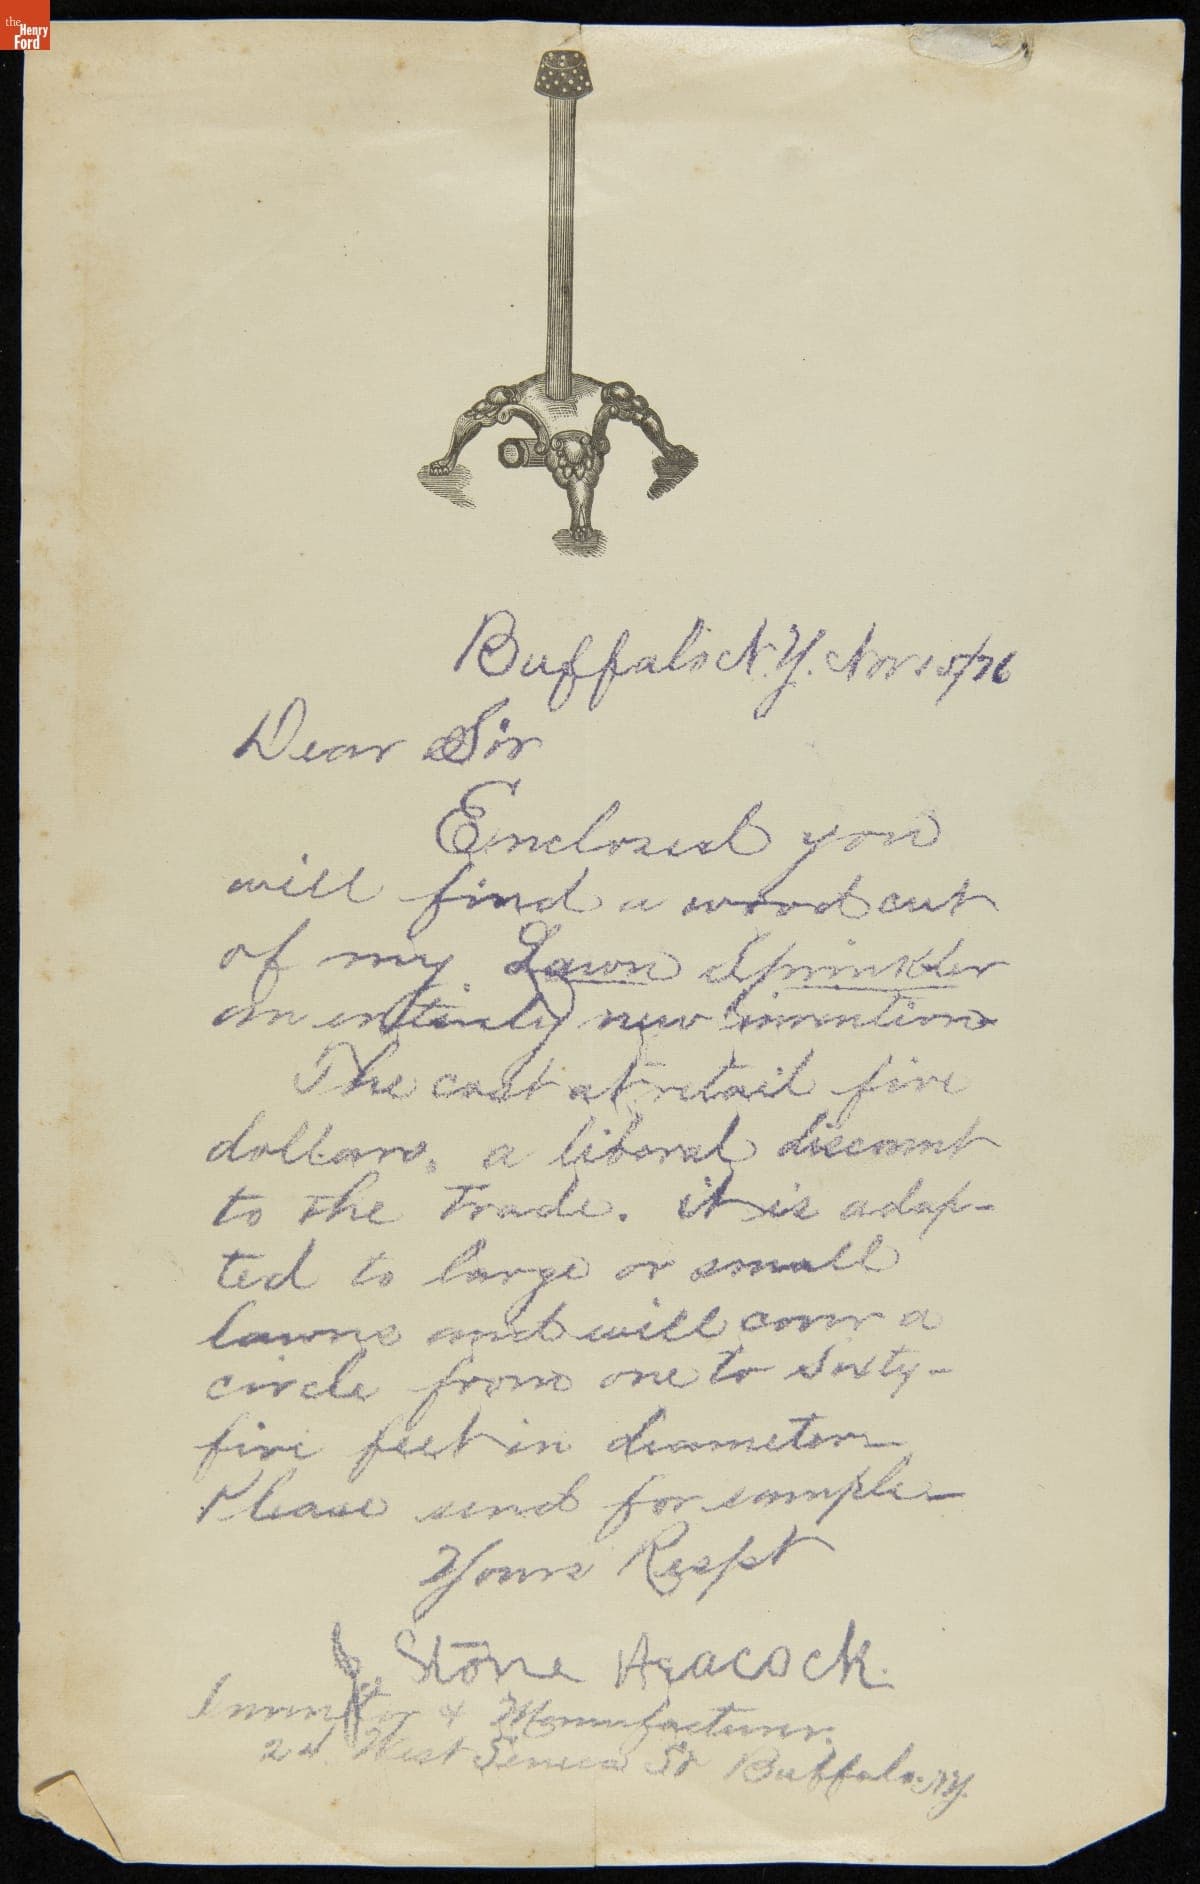 the
Henry
Ford
Buffalo N.Y. Nov 15/76
Dear Sir
Enclosed you
will find a wood cut
of my Lawn Sprinkler
an entirely new invention
The cost at retail five
dollars. a liberal discount
to the trade. it is adap-
ted to large or small
lawns and will cover a
circle from one to sixty-
five feet in diameter
Please send for sample
Yours Respt
J. Stone Heacock.
Inventor & Manufacturer.
24 West Seneca St Buffalo. NY.